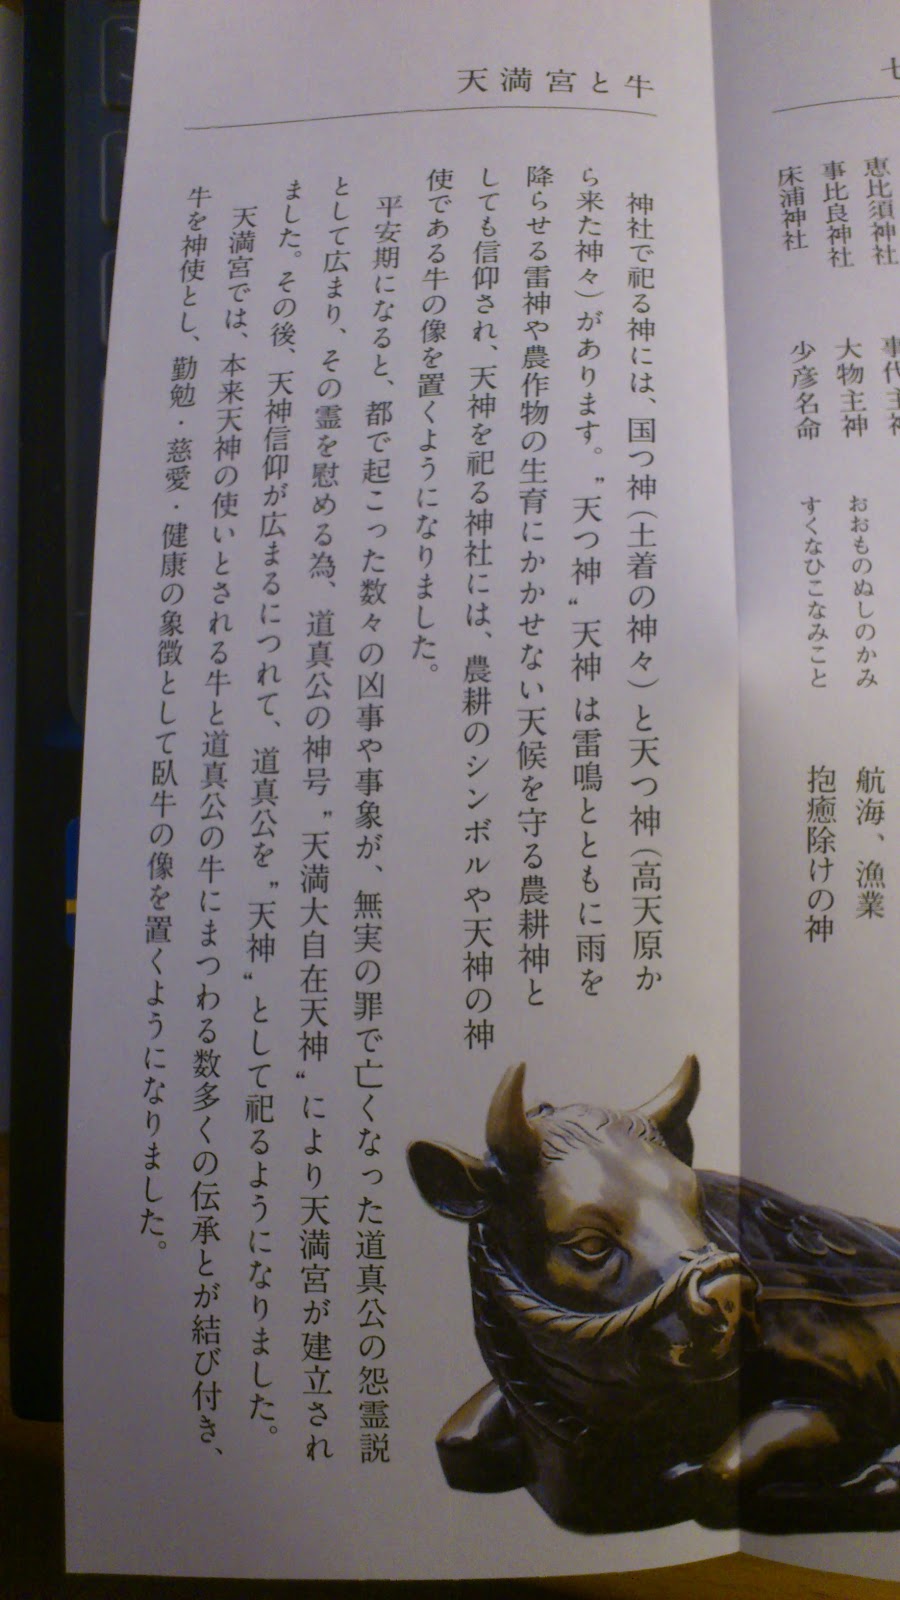 恵比須神社 事代主神
事比良神社 大物主神 おおものぬしのかみ 航海、漁業
床浦神社 少彦名命 すくなひこなみこと 抱癒除けの神
天満宮と牛
神社で祀る神には、国つ神（土着の神々）と天つ神（高天原か
ら来た神々）があります。〝天つ神〟天神 は雷鳴とともに雨を
降らせる雷神や農作物の生育にかかせない天候を守る農耕神と
しても信仰され、天神を祀る神社には、農耕のシンボルや天神の神
使である牛の像を置くようになりました。
平安期になると、都で起こった数々の凶事や事象が、無実の罪で亡くなった道真公の怨霊説
として広まり、その霊を慰める為、道真公の神号〝天満大自在天神〟により天満宮が建立され
ました。その後、天神信仰が広まるにつれて、道真公を〝天神〟として祀るようになりました。
天満宮では、本来天神の使いとされる牛と道真公の牛にまつわる数多くの伝承とが結び付き、
牛を神使とし、勤勉・慈愛・健康の象徴として臥牛の像を置くようになりました。